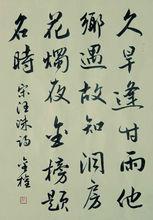 久旱逢甘雨他
鄉遇故知洞房
花燭夜金榜題
名時 宋汪洙詩